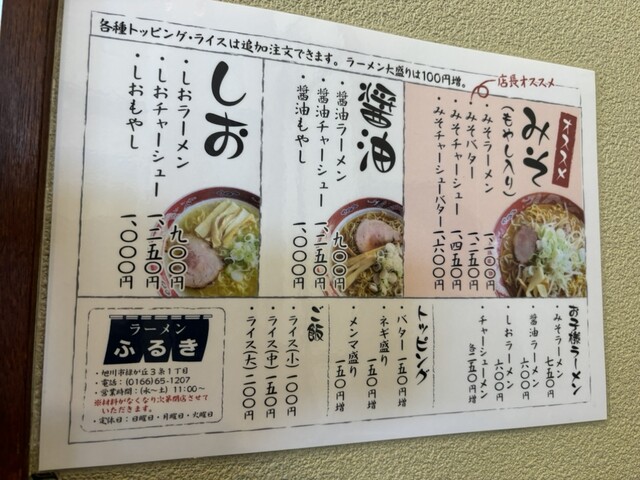 各種トッピング・ライスは追加注文できます。ラーメン大盛りは100円増。
店長オススメ
オススメ
みそ
(もやし入り)
・みそラーメン 一、一〇〇円
・みそバター 一、二五〇円
・みそチャーシュー 一、四五〇円
・みそチャーシューバター 一、六〇〇円
醤油
・醤油ラーメン 九〇〇円
・醤油チャーシュー 一、二五〇円
・醤油もやし 一、〇〇〇円
しお
・しおラーメン 九〇〇円
・しおチャーシュー 一、二五〇円
・しおもやし 一、〇〇〇円
お子様ラーメン
・みそラーメン 七五〇円
・醤油ラーメン 六〇〇円
・しおラーメン 六〇〇円
・チャーシューメン 各二五〇円増
トッピング
・バター 一五〇円増
・ネギ盛り 一五〇円増
・メンマ盛り 一五〇円増
ご飯
・ライス(小) 一〇〇円
・ライス(中) 一五〇円
・ライス(大) 二〇〇円
ラーメン
ふるき
・旭川市緑が丘3条1丁目
・電話:(0166)65-1207
・営業時間:(水〜土) 11:00〜
※材料がなくなり次第閉店させて
いただきます。
・定休日:日曜日・月曜日・火曜日